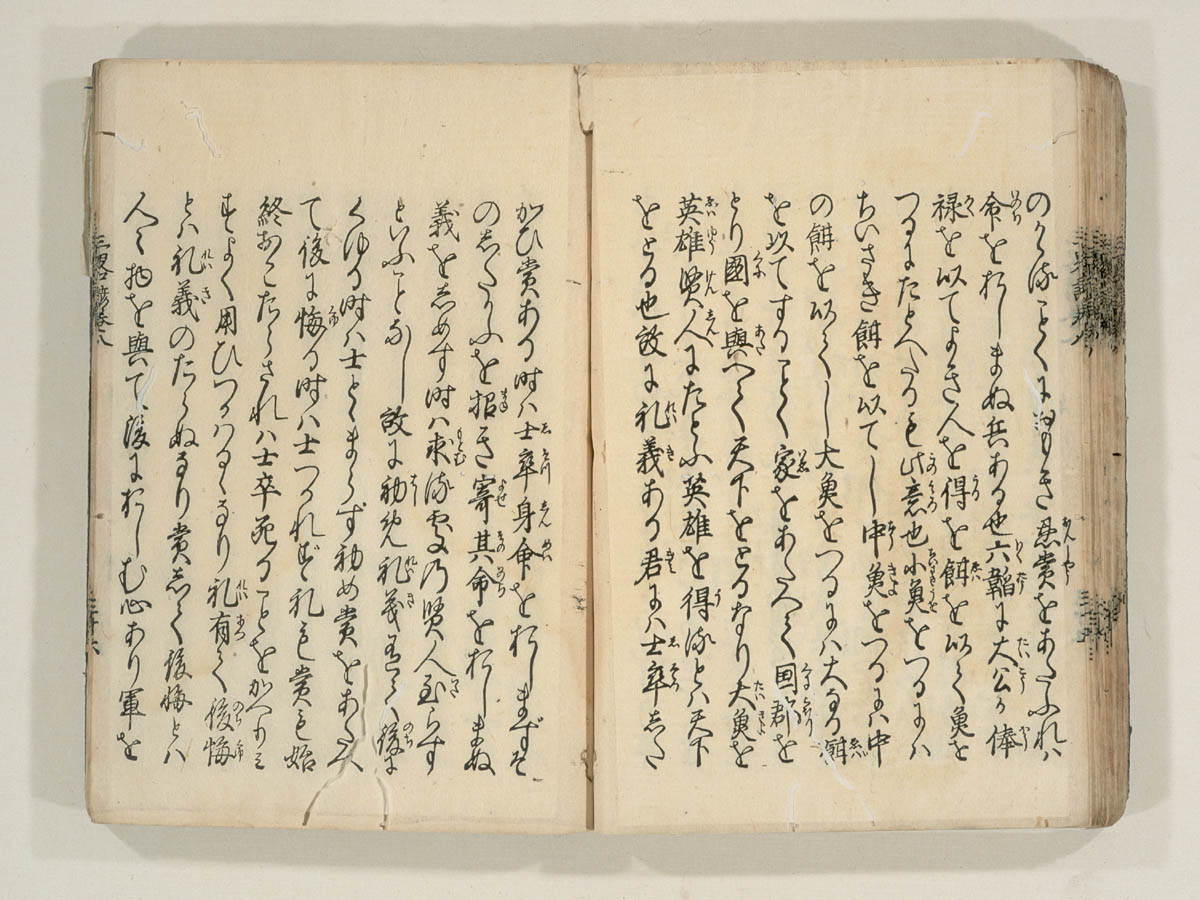 のくるゝことくにおもき恩賞をあたふれハ
命をおしまぬ兵ある也六韜に大公か俸
禄を以てよき人を得るを餌を以て魚を
つるにたとへたるも此意也小魚をつるにハ
ちいさき餌を以てし中魚をつるにハ中
の餌を以てし大魚をつるにハ大なる餌
を以てすることく家をあたへて国郡を
とり國を與へて天下をとるなり大魚を
英雄賢人にたとふ英雄を得るとハ天下
をとる也故に礼義ある君にハ士卒した
かひ賞ある時ハ士卒身命をおしまずそ
のしたかふを招き寄其命をおしまぬ
義をしめす時ハ求る處乃賢人至らす
といふことなし故に初め礼義有て後に
くゆる時ハ士とゝまらず初め賞をあたへ
て後に悔る時ハ士つかれず礼も賞も始
終おこたらされハ士卒死ることをかへりミ
すよく用ひつかハるゝなり礼有て後悔
とハ礼義のたらぬなり賞して後悔とハ
人に物を與て後におしむ心あり軍を